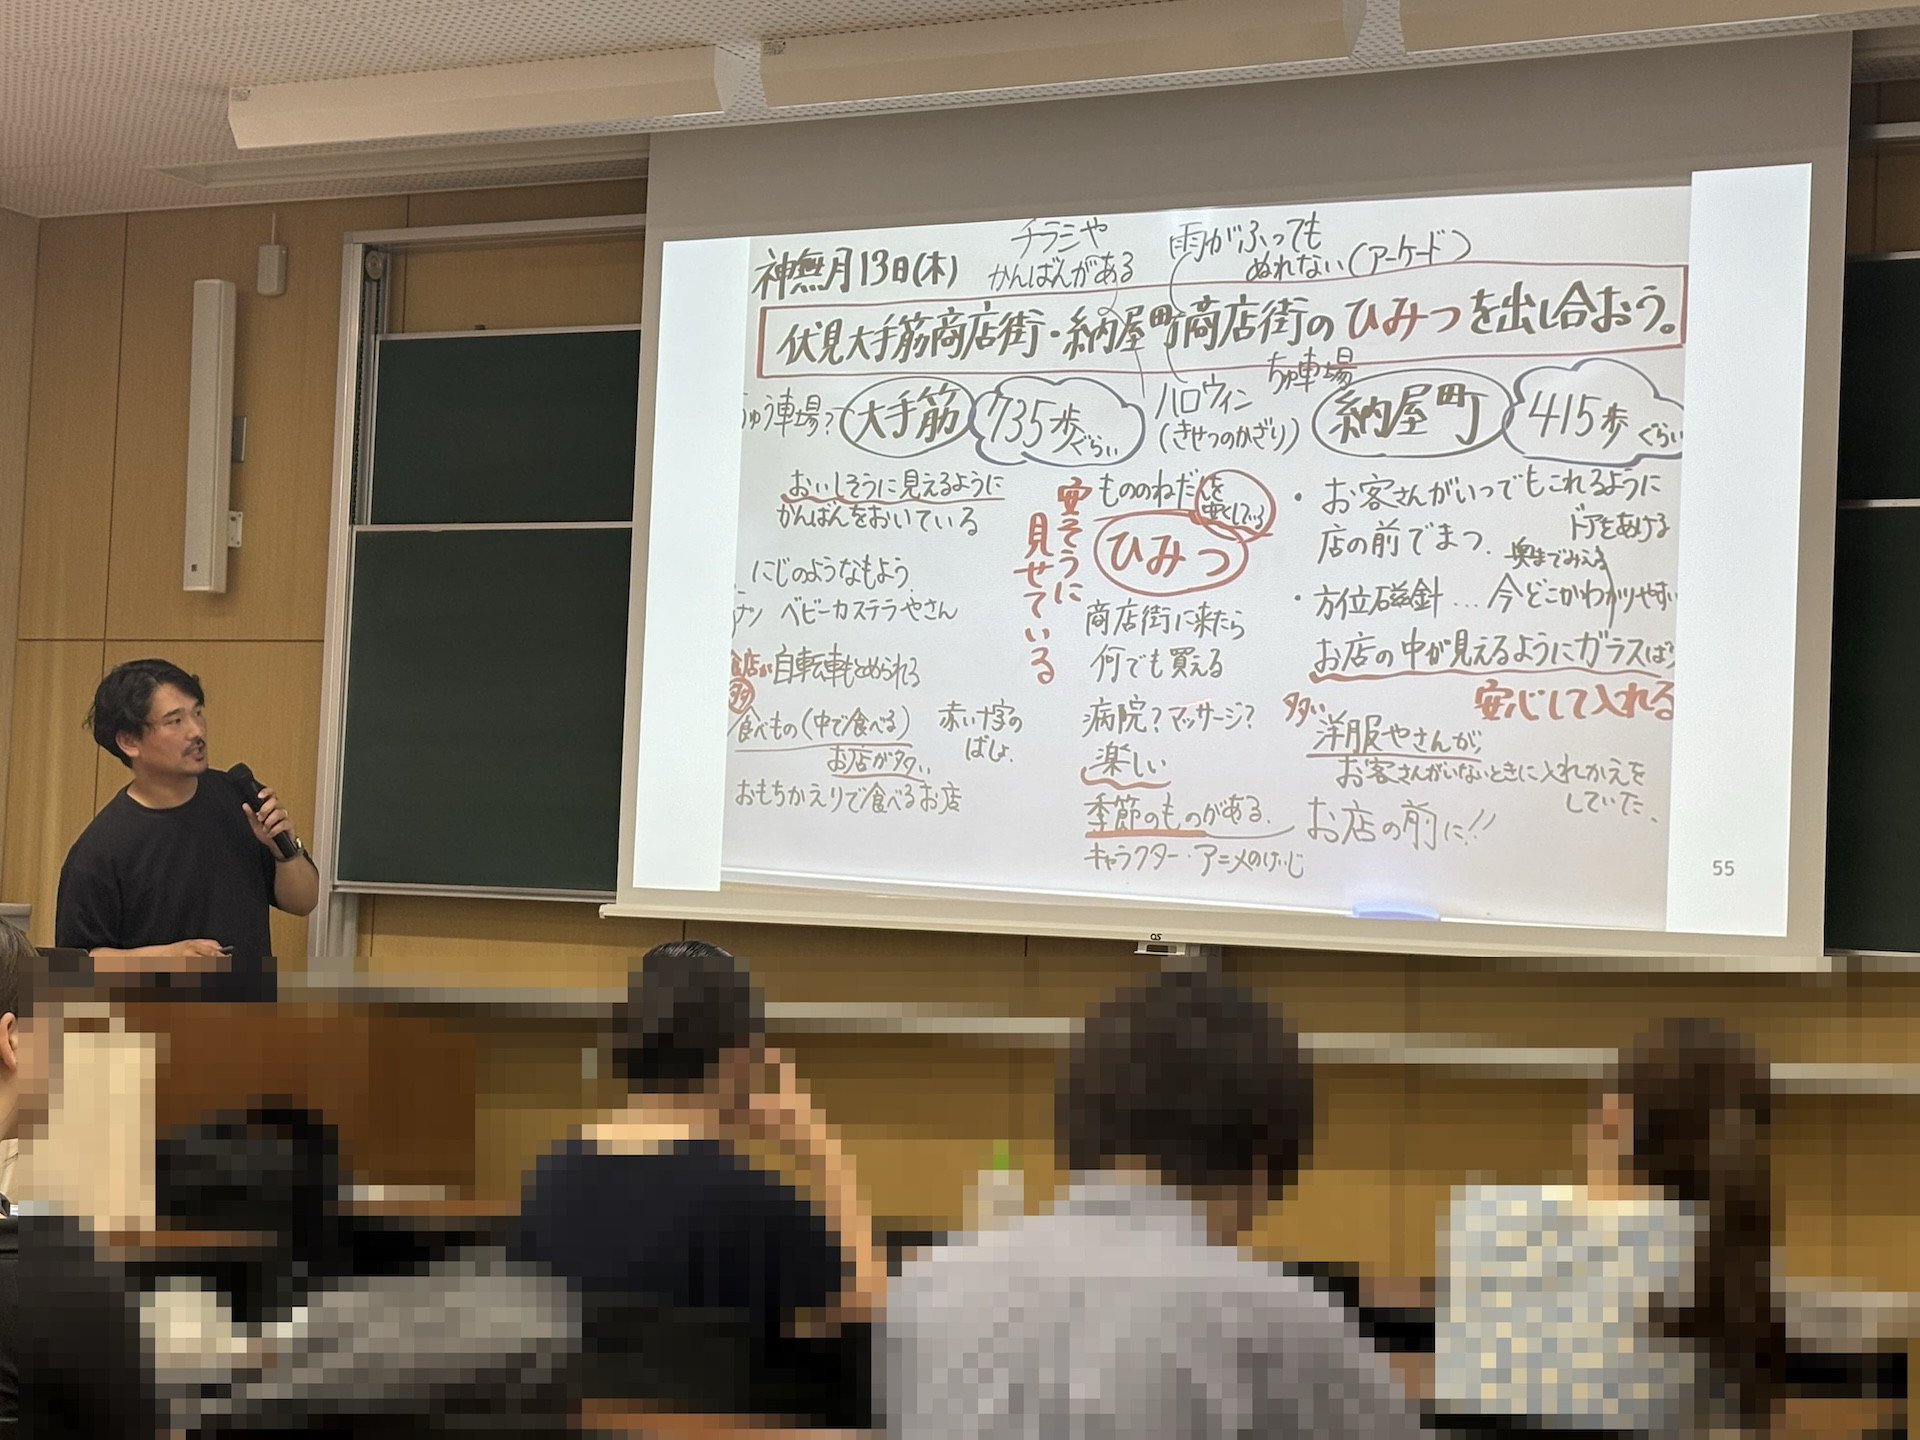 神無月13日(木)
チラシや
かんばんがある
雨がふっても
ぬれない(アーケード)
伏見大手筋商店街・納屋町商店街のひみつを出し合おう。
ちゅう車場?
大手筋
735歩
ぐらい
ハロウィン
(きせつのかざり)
ちゅ車場
納屋町
415歩
ぐらい
おいしそうに見えるように
かんばんをおいている
にじのようなもよう
ベビーカステラやさん
自転車もとめられる
多
食べもの(中で食べる)
お店が多い
赤い十字の
ばしょ
おもちかえりで食べるお店
安そうに
見せている
もののねだんを
安くしている
ひみつ
商店街に来たら
何でも買える
病院?マッサージ?
楽しい
季節のものがある。
キャラクター・アニメのけいじ
・お客さんがいつでもこれるように
ドアをあける
店の前でまつ。
奥までみえる
・方位磁針…今どこかわかりやすい
お店の中が見えるようにガラスば
安心して入れる
多い
洋服やさんが
お客さんがいないときに入れかえを
していた。
お店の前に!!
55
OS